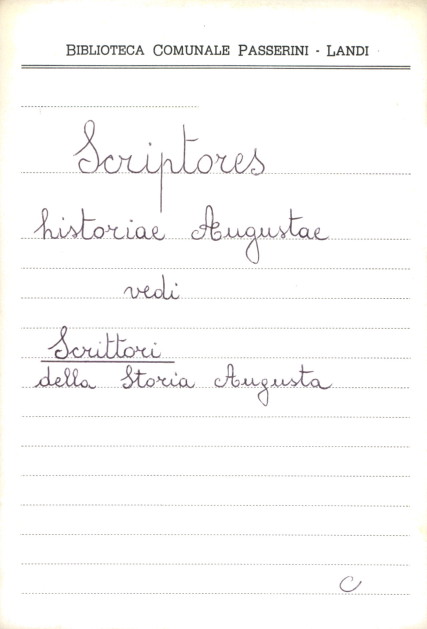 BIBLIOTECA COMUNALE PASSERINI - LANDI
Scriptores
historiae Augustae
vedi
Scrittori
della Storia Augusta
C